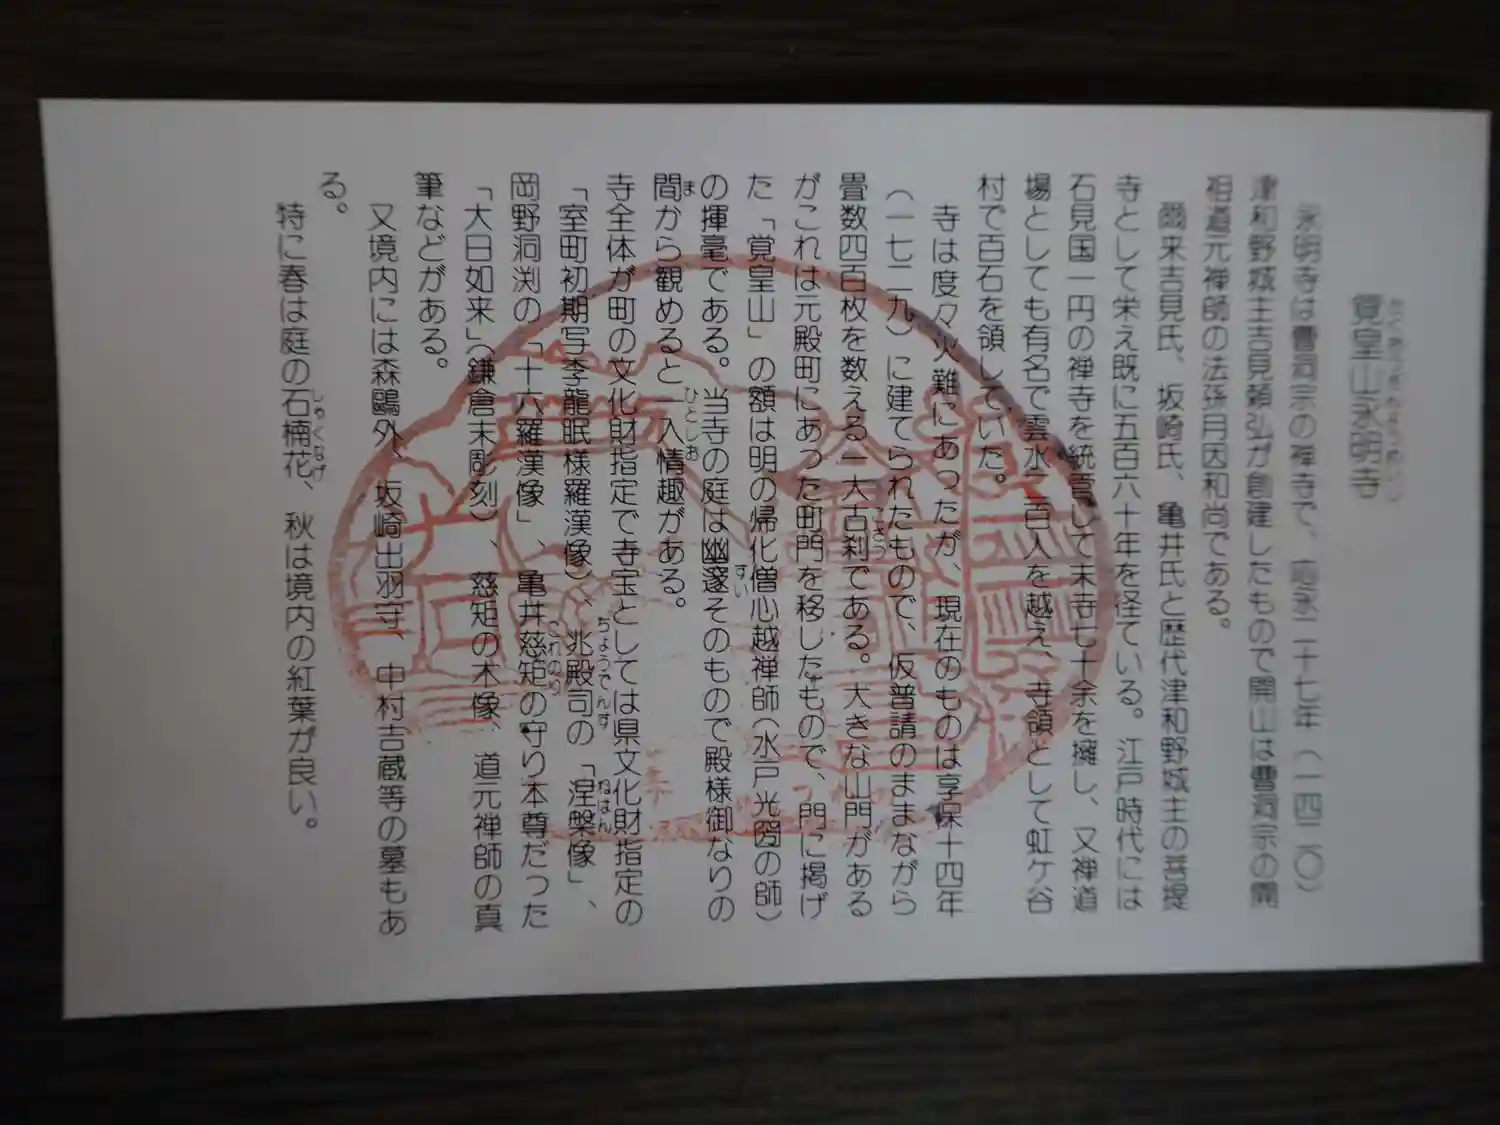 覚皇山永明寺
永明寺は曹洞宗の禅寺で、応永二十七年（一四二〇）
津和野城主吉見頼弘が創建したもので開山は曹洞宗の開
祖道元禅師の法孫月因和尚である。
爾来吉見氏、坂崎氏、亀井氏と歴代津和野城主の菩提
寺として栄え既に五百六十年を経ている。江戸時代には
石見国一円の禅寺を統管して末寺七十余を擁し、又禅道
場としても有名で雲水二百人を越え、寺領として虹ケ谷
村で百石を領していた。
寺は度々火難にあつたが、現在のものは享保十四年
（一七二九）に建てられたもので、仮普請のままながら
畳数四百枚を数える一大古刹である。大きな山門がある
こさつ
がこれは元殿町にあった町門を移したもので、門に掲げ
た「覚皇山」の額は明の帰化僧心越禅師（水戸光圀の師）
の揮毫である。当寺の庭は幽邃そのもので殿様御なりの
すい
間から観めると一入情趣がある。
ま
ひとしお
寺全体が町の文化財指定で寺宝としては県文化財指定の
「室町初期写李龍眠様羅漢像」、兆殿司の「涅槃像」、
ちょうでんす
ねはん
岡野洞渕の「十六羅漢像」、亀井慈矩の守り本尊だった
これのり
「大日如来」（鎌倉末彫刻）、慈矩の木像、道元禅師の真
筆などがある。
又境内には森鷗外、坂崎出羽守、中村吉蔵等の墓もあ
る。
特に春は庭の石楠花、秋は境内の紅葉が良い。
しゃくなげ